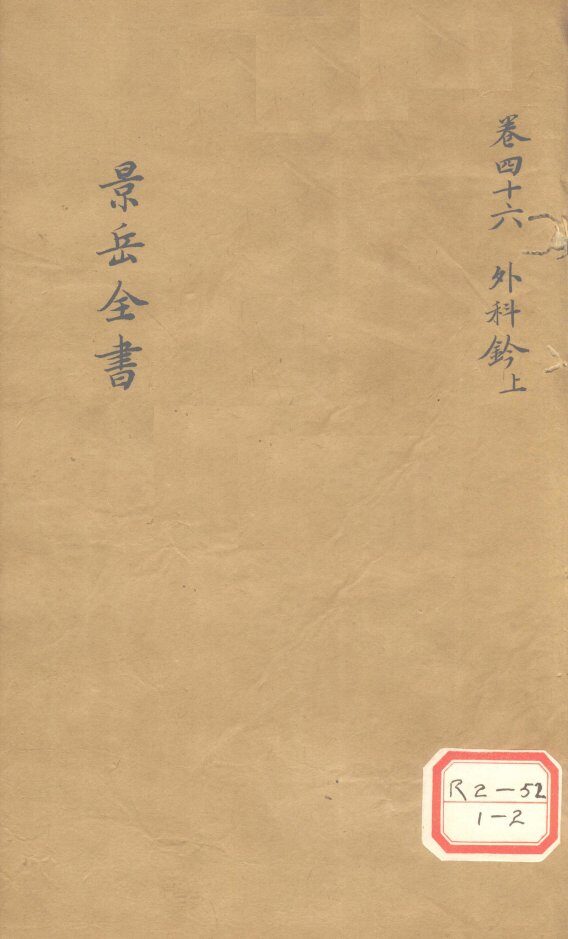 卷四十六 外科鈐上
景岳全書
R2-52
1-2